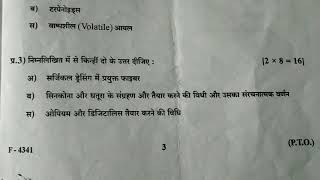 ब) टरपेनोइड्स
स) वाष्पशील (Volatile) आयल
प्र.3) निम्नलिखित में से किन्हीं दो के उत्तर दीजिए : [2 × 8 = 16]
अ) सर्जिकल ड्रेसिंग में प्रयुक्त फाइबर
ब) सिनकोना और धतूरा के संग्रहण और तैयार करने की विधी और उसका संरचनात्मक वर्णन
स) ओपियम और डिजिटालिस तैयार करने की विधि
F - 4341 3 (P.T.O.)